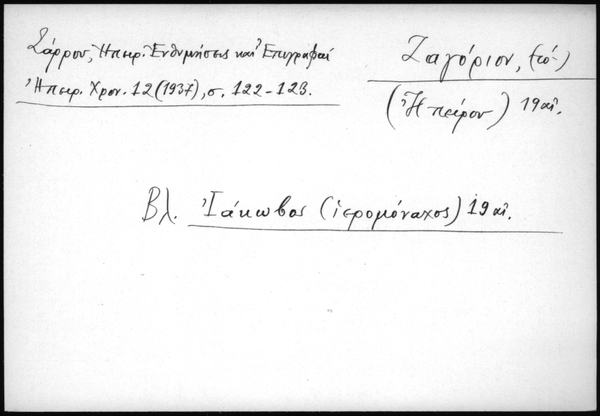 Σάρρου, Ἠπειρ. Ἐνθυμήσεις καὶ Ἐπιγραφαί
Ἠπειρ. Χρον. 12 (1937), σ. 122-123.
Ζαγόριον, (τό-)
(Ἠπείρου) 19 αἰ.
Βλ. Ἰάκωβος (ἱερομόναχος) 19 αἰ.